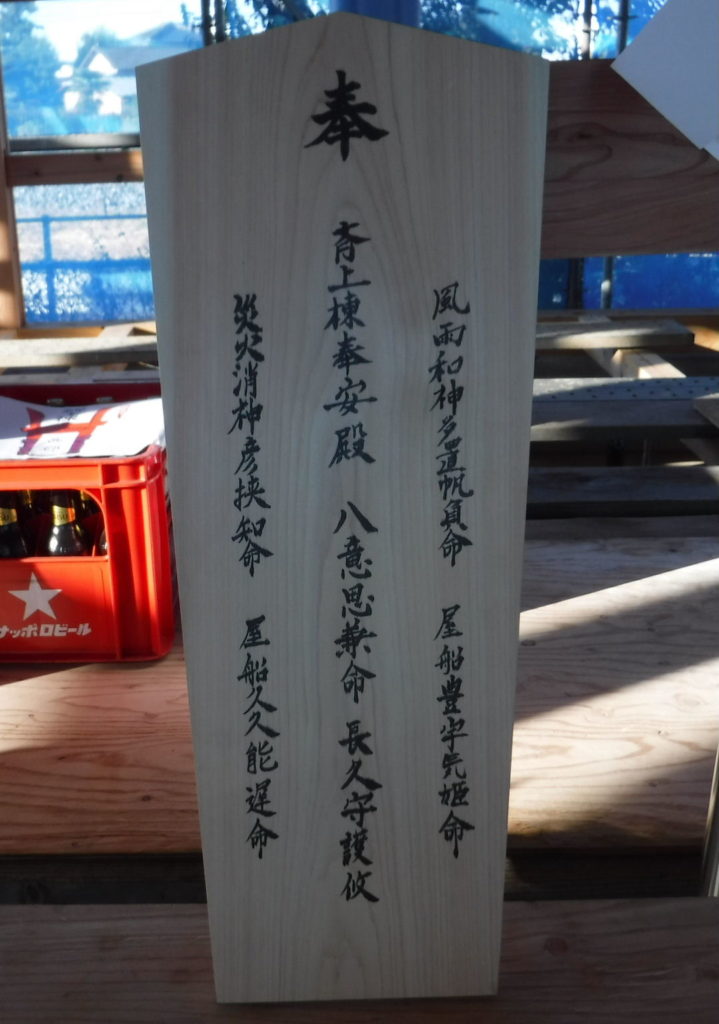 奉
風雨和神手置帆負命 屋船豊宇気姫命
斉上棟奉安殿 八意思兼命 長久守護攸
災火消神彦挟知命 屋船久久能遅命
サッポロビール